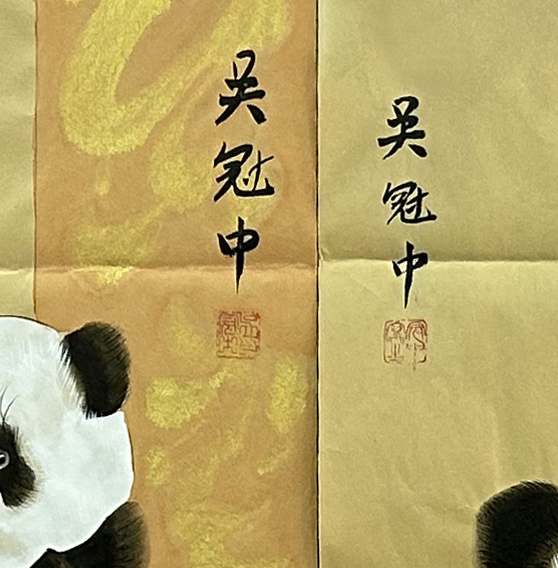 吴冠中
吴冠中